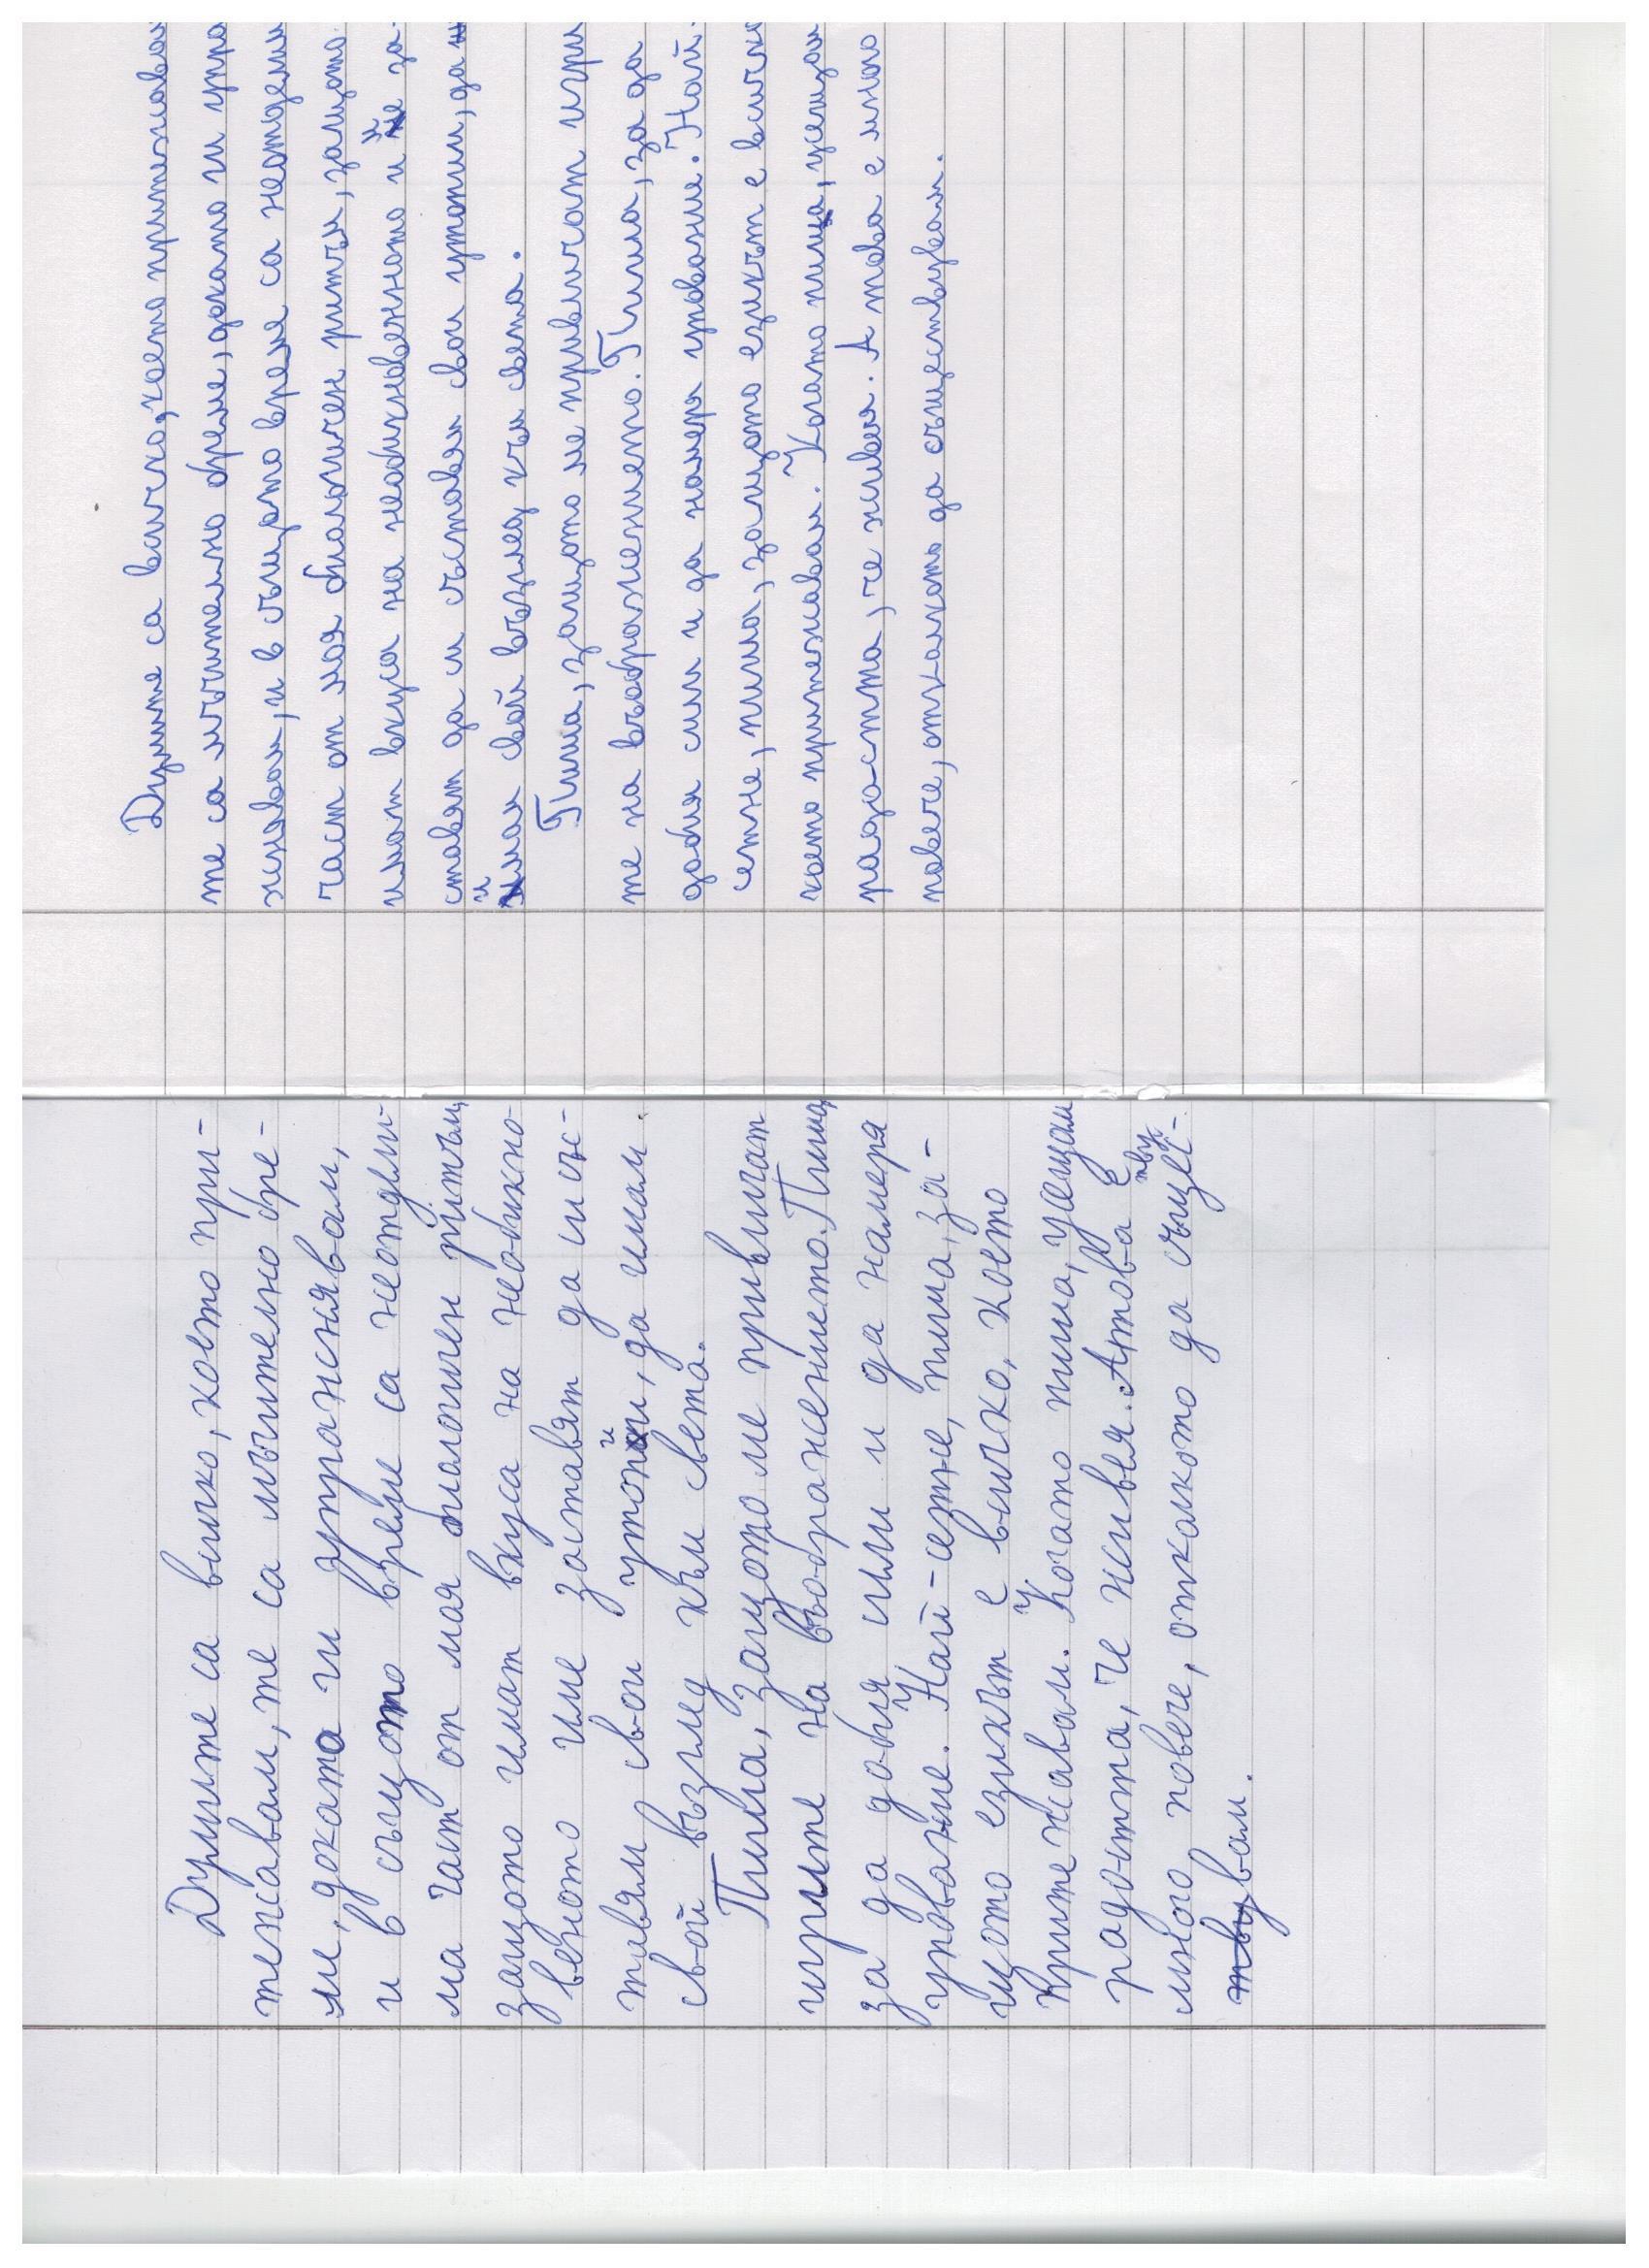 Думите са всичко, което при-
тежавам, те са мъчително бре-
ме, докато ги упражнявам,
и в същото време са неотдели-
ма част от моя биологичен ритъм,
защото имат вкуса на необикно-
веното и ме заставят да си със-
тавям свои утопии, да имам
свой възглед към света.
Пиша, защото ме привличат
игрите на въображението. Пиша,
за да добия сили и да намеря
упование. Най-сетне, пиша, за-
щото езикът е всичко, което
притежавам. Когато пиша, усещам
радостта, че живея. А това е
много повече, отколкото да същест-
вувам.
Думите са всичко, което притежавам
те са мъчително бреме, докато ги упра
жнявам, и в същото време са неотдели
част от моя биологичен ритъм, защото
имат вкуса на необикновеното и ме за-
ставят да си съставям свои утопии, да и
имам свой възглед към света.
Пиша, защото ме привличат игри
те на въображението. Пиша, за да
добия сили и да намеря упование. Най-
сетне, пиша, защото езикът е всичко
което притежавам. Когато пиша, усещам
радостта, че живея. А това е много
повече, отколкото да съществувам.